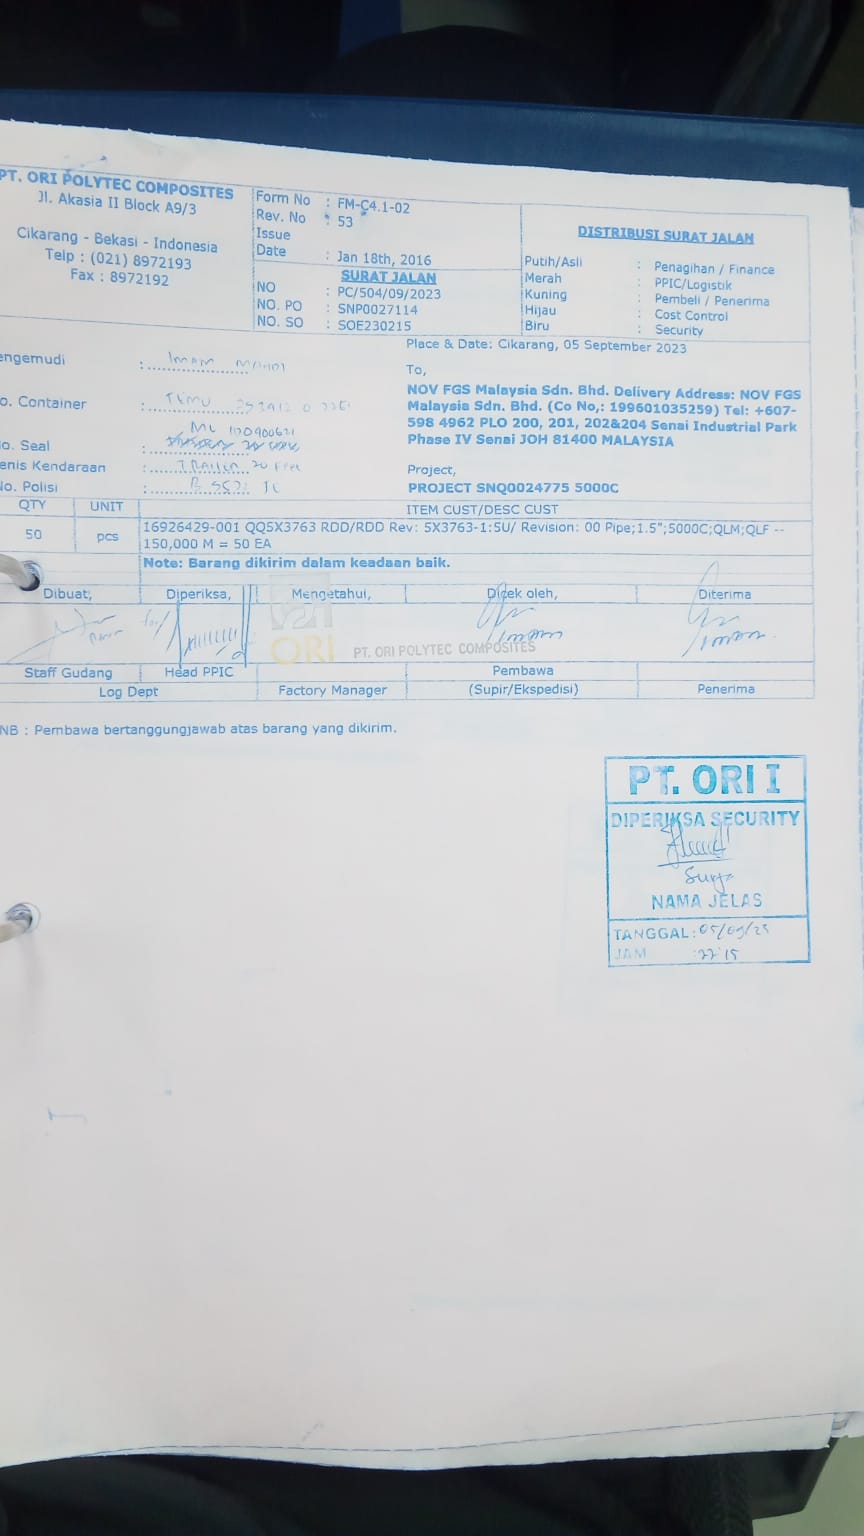 PT. ORI POLYTEC COMPOSITES
Jl. Akasia II Block A9/3
Cikarang - Bekasi - Indonesia
Telp : (021) 8972193
Fax : 8972192
Form No : FM-C4.1-02
Rev. No : 53
Issue
Date : Jan 18th, 2016
SURAT JALAN
NO : PC/504/09/2023
NO. PO : SNP0027114
NO. SO : SOE230215
DISTRIBUSI SURAT JALAN
Putih/Asli : Penagihan / Finance
Merah : PPIC/Logistik
Kuning : Pembeli / Penerima
Hijau : Cost Control
Biru : Security
Place & Date: Cikarang, 05 September 2023
engemudi : Imam
To,
o. Container :
NOV FGS Malaysia Sdn. Bhd. Delivery Address: NOV FGS
Malaysia Sdn. Bhd. (Co No,: 199601035259) Tel: +607-
598 4962 PLO 200, 201, 202&204 Senai Industrial Park
Phase IV Senai JOH 81400 MALAYSIA
o. Seal :
enis Kendaraan : TRAILER 20 Feet
o. Polisi :
Project,
PROJECT SNQ0024775 5000C
QTY UNIT ITEM CUST/DESC CUST
50 pcs 16926429-001 QQ5X3763 RDD/RDD Rev: 5X3763-1:5U/ Revision: 00 Pipe;1.5";5000C;QLM;QLF --
150,000 M = 50 EA
Note: Barang dikirim dalam keadaan baik.
Dibuat, Diperiksa, Mengetahui, Dicek oleh, Diterima
Imam Imam
ORI PT. ORI POLYTEC COMPOSITES
Staff Gudang Head PPIC Pembawa
Log Dept Factory Manager (Supir/Ekspedisi) Penerima
NB : Pembawa bertanggungjawab atas barang yang dikirim.
PT. ORI I
DIPERIKSA SECURITY
NAMA JELAS
TANGGAL: 05/09/23
JAM : 22:15